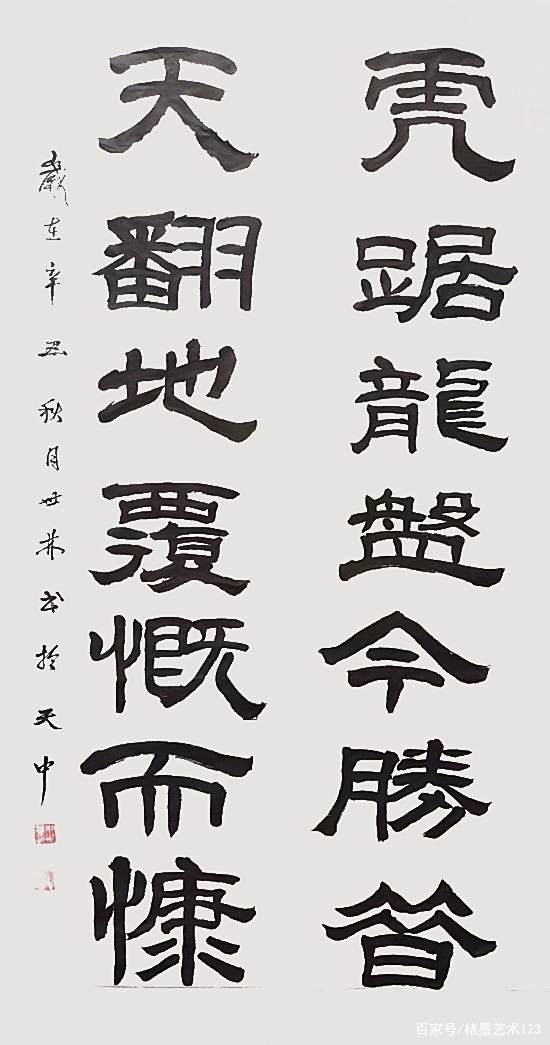 虎踞龍盤今勝昔
天翻地覆慨而慷
歲在辛丑秋月世林書於天中
百家号/楮墨艺术123